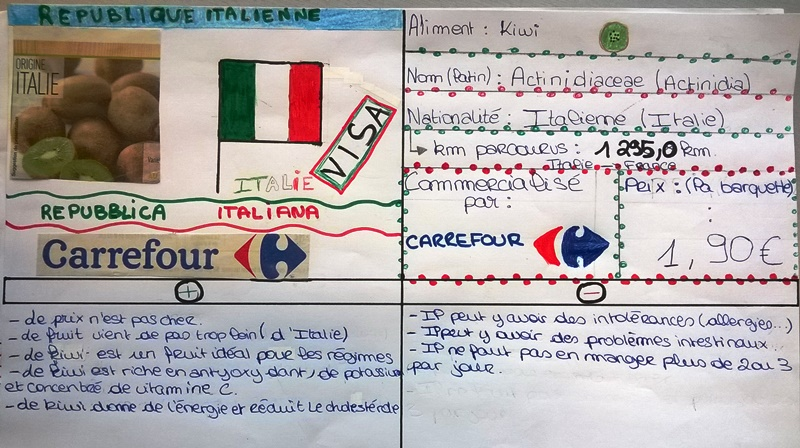 REPUBLIQUE ITALIENNE
ORIGINE
ITALIE
ITALIE
VISA
REPUBBLICA ITALIANA
Carrefour
Aliment : Kiwi
Nom (latin) : Actinidiaceae (Actinidia)
Nationalité : Italienne (Italie)
km parcourus : 1 295,0 km.
Italie → France
Commercialisé
par :
CARREFOUR
Prix : (la barquette)
:
1,90€
+
- le prix n'est pas cher.
- le fruit vient de pas trop loin (d'Italie)
- le kiwi est un fruit idéal pour les régimes
- le kiwi est riche en antyoxydant, de potassium
et concentré de vitamine C.
- le kiwi donne de l'énergie et réduit le cholestérole
-
- Il peut y avoir des intolérances (allergies...)
- Il peut y avoir des problèmes intestinaux.
- Il ne faut pas en manger plus de 2 ou 3
par jour.